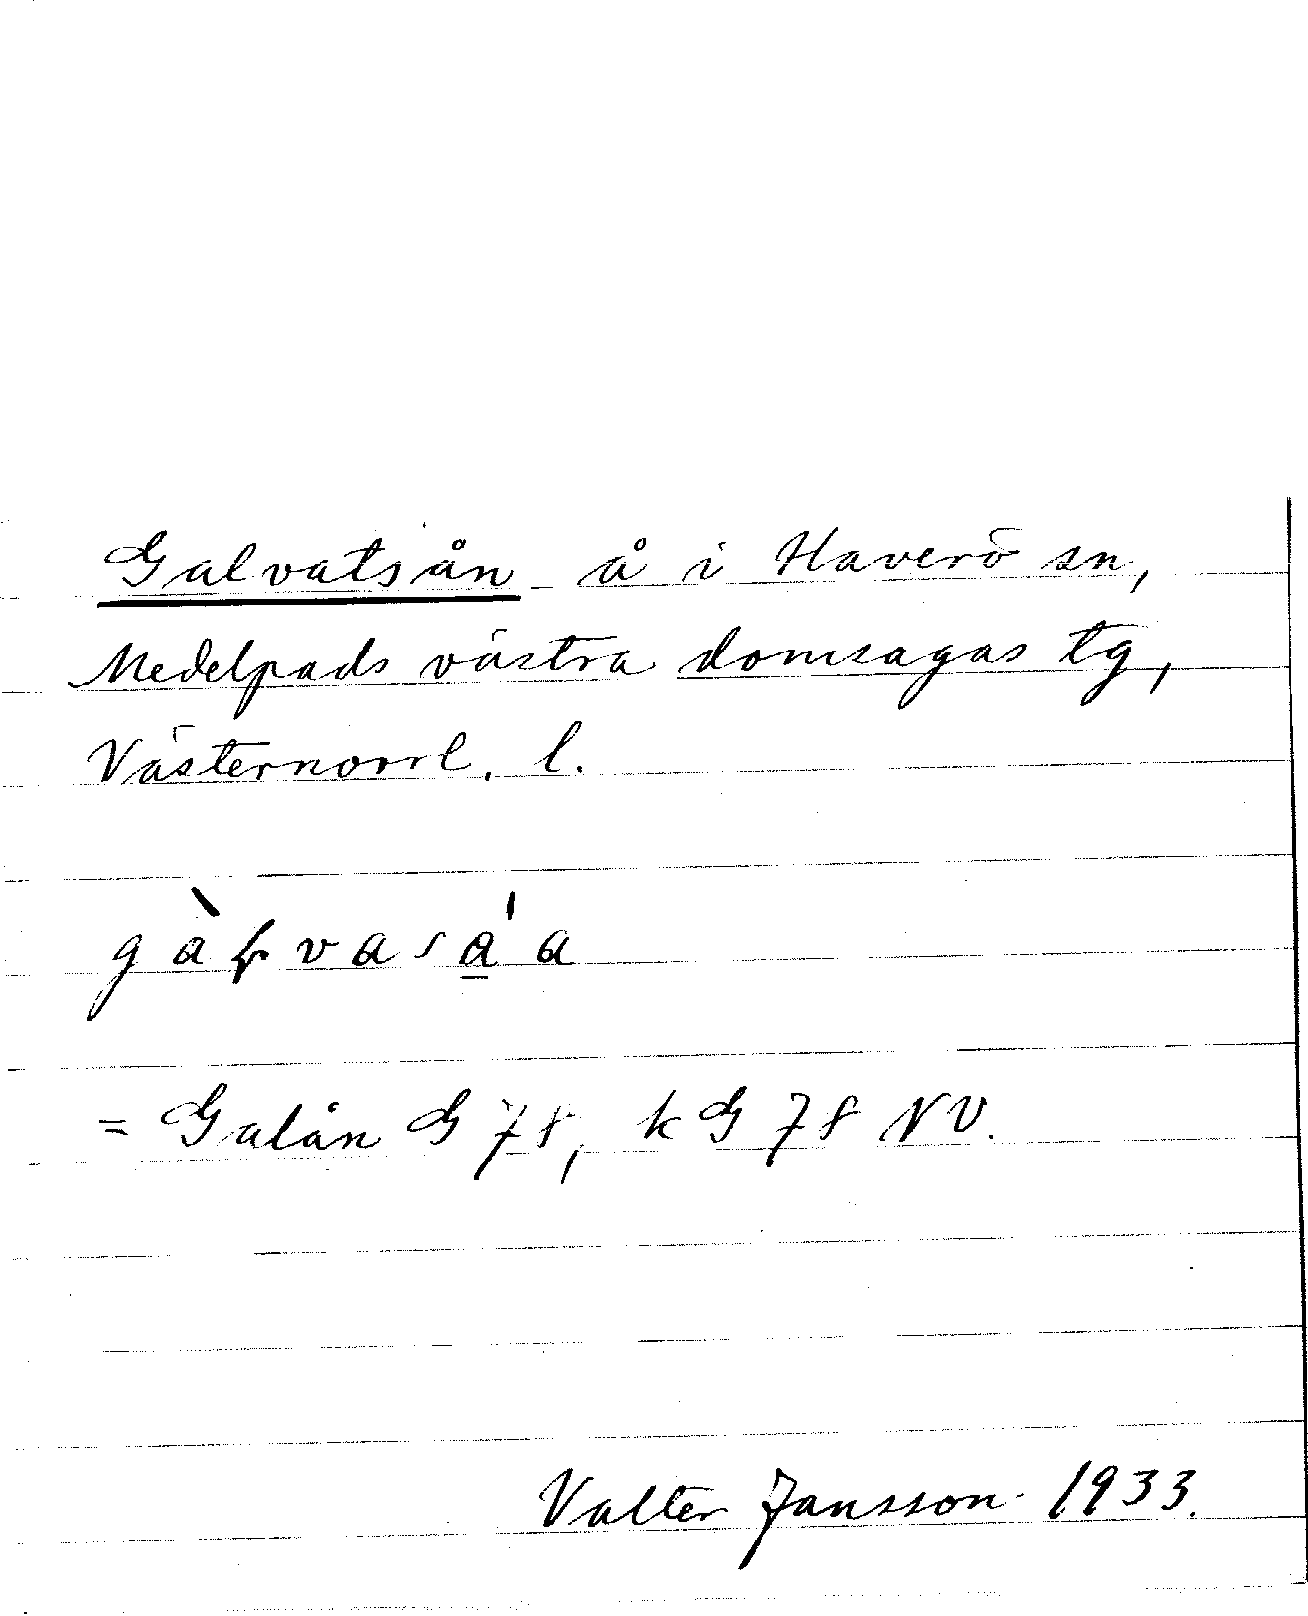 Galvatsån å i Haverö sn,
Medelpads västra domsagas tg,
Västernorrl. l.
= Galån G 78, kG 78 NV.
Valter Jansson 1933.